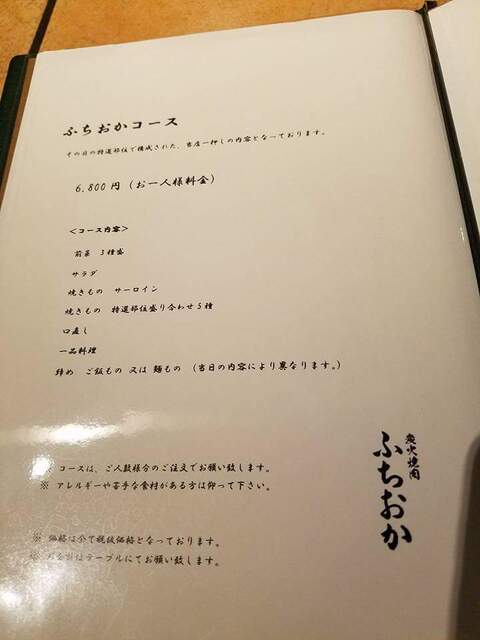 ふちおかコース
その日の特選部位で構成された、当店一押しの内容となっております。
6,800円（お一人様料金）
＜コース内容＞
前菜 3種盛
サラダ
焼きもの サーロイン
焼きもの 特選部位盛り合わせ5種
口直し
一品料理
締め ご飯もの 又は 麺もの （当日の内容により異なります。）
※ コースは、ご人数様分のご注文でお願い致します。
※ アレルギーや苦手な食材がある方は仰って下さい。
※ 価格は全て税抜価格となっております。
※ お会計はテーブルにてお願い致します。
炭火焼肉
ふちおか